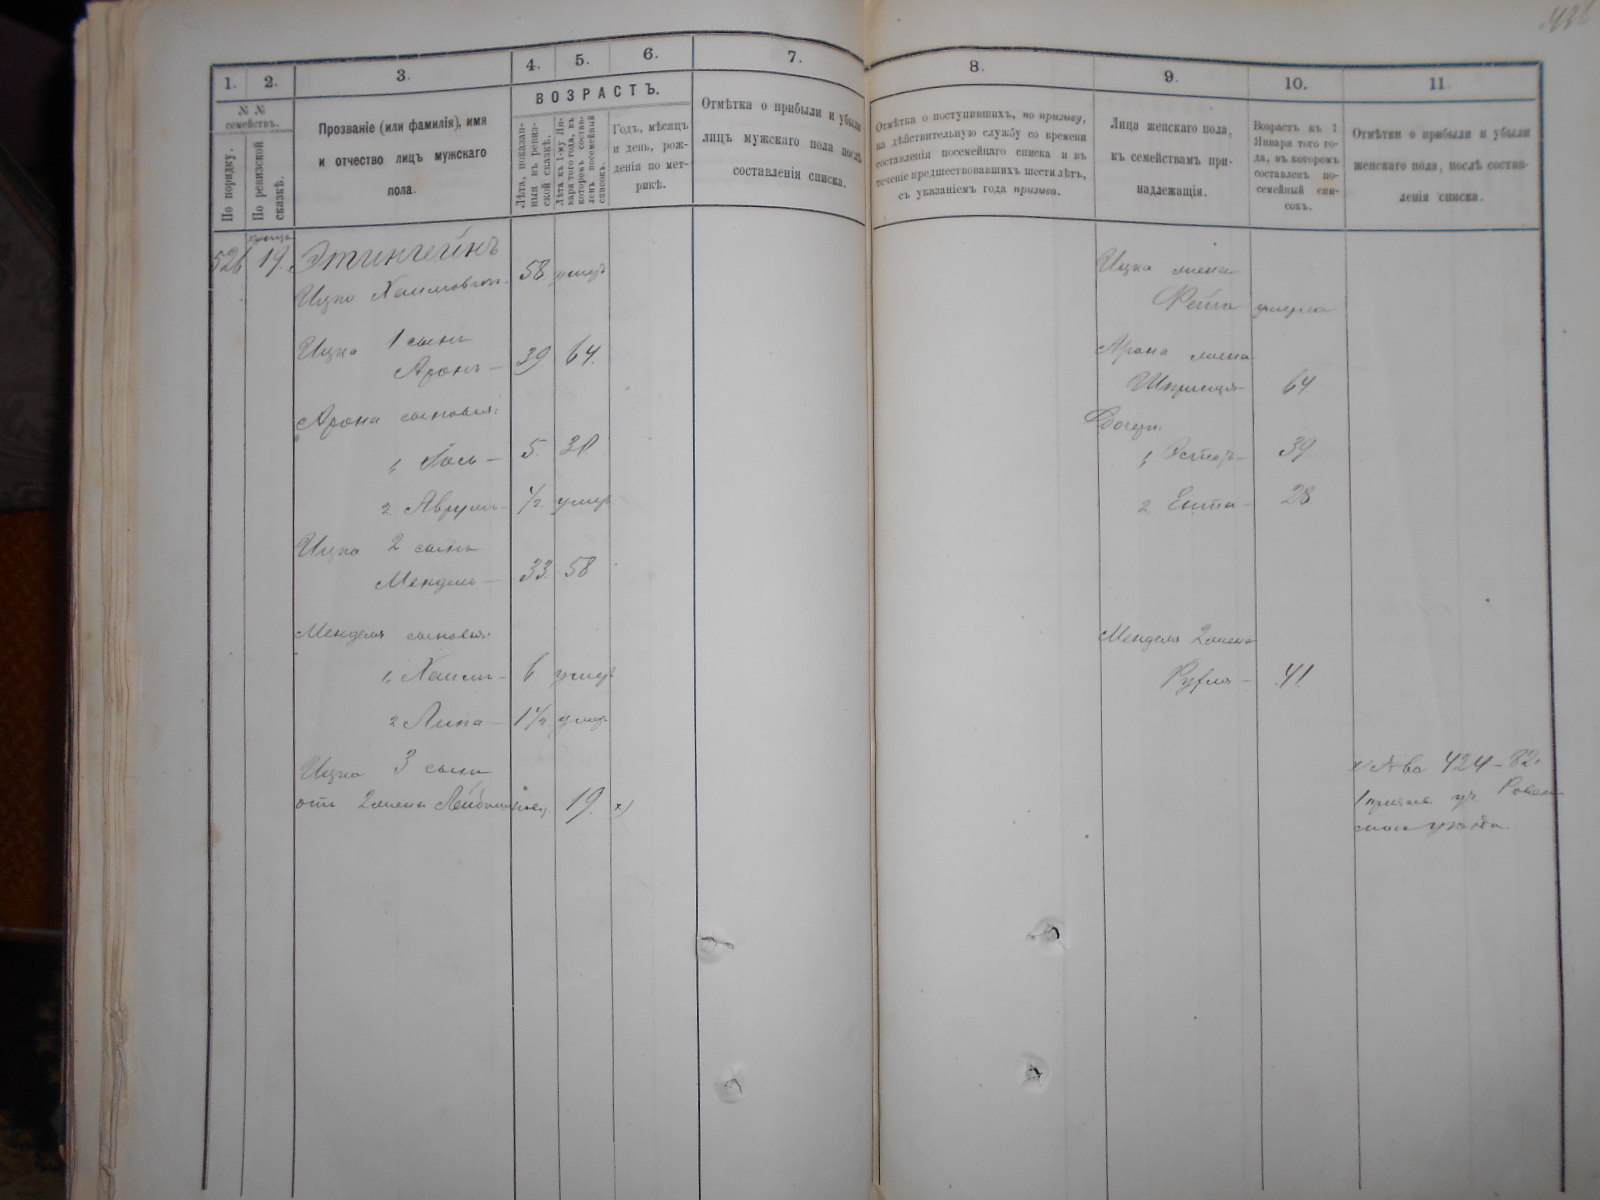 1. 2. 3. 4. 5. 6. 7. 8. 9. 10. 11.
№ №
семействъ.
По порядку.
По ревизской
сказкѣ.
Прозваніе (или фамилія), имя
и отчество лицъ мужскаго
пола.
ВОЗРАСТЪ.
Лѣта, показан-
ныя въ ревиз-
ской сказкѣ.
Лѣта къ 1-му Ян-
варя того года, въ
которомъ состав-
ленъ посемейный
списокъ.
Годъ, мѣсяцъ
и день, рож-
денія по мет-
рикѣ.
Отмѣтка о прибыли и убыли
лицъ мужскаго пола послѣ
составленія списка.
Отмѣтка о поступившихъ, по призыву,
на дѣйствительную службу со времени
составленія посемейнаго списка и въ
теченіе предшествовавшихъ шести лѣтъ,
съ указаніемъ года призыва.
Лица женскаго пола,
къ семействамъ при-
надлежащія.
Возрастъ къ 1
Января того го-
да, въ которомъ
составленъ по-
семейный спи-
сокъ.
Отмѣтки о прибыли и убыли
женскаго пола, послѣ состав-
ленія списка.
526 19. Этингейнъ
Ицко Хаимовичъ 58 умеръ
Ицка 1 сынъ
Аронъ — 39 64.
Арона сыновья:
1, Іось — 5. 30
2. Аврумъ — 1/2 умер
Ицка 2 сынъ
Мендель — 33. 58
Менделя сыновья:
1, Хаимъ — 6 умер
2 Липа — 1 1/2 умер
Ицка 3 сынъ
отъ 2 жены Лейба 19. х)
Ицка жена
Рейза умерла
Арона жена
Шпринца — 64
Дочери:
1, Эстеръ — 39
2 Ента — 28
Менделя 2 жена
Рухля — 41
х) № 424 – 82.